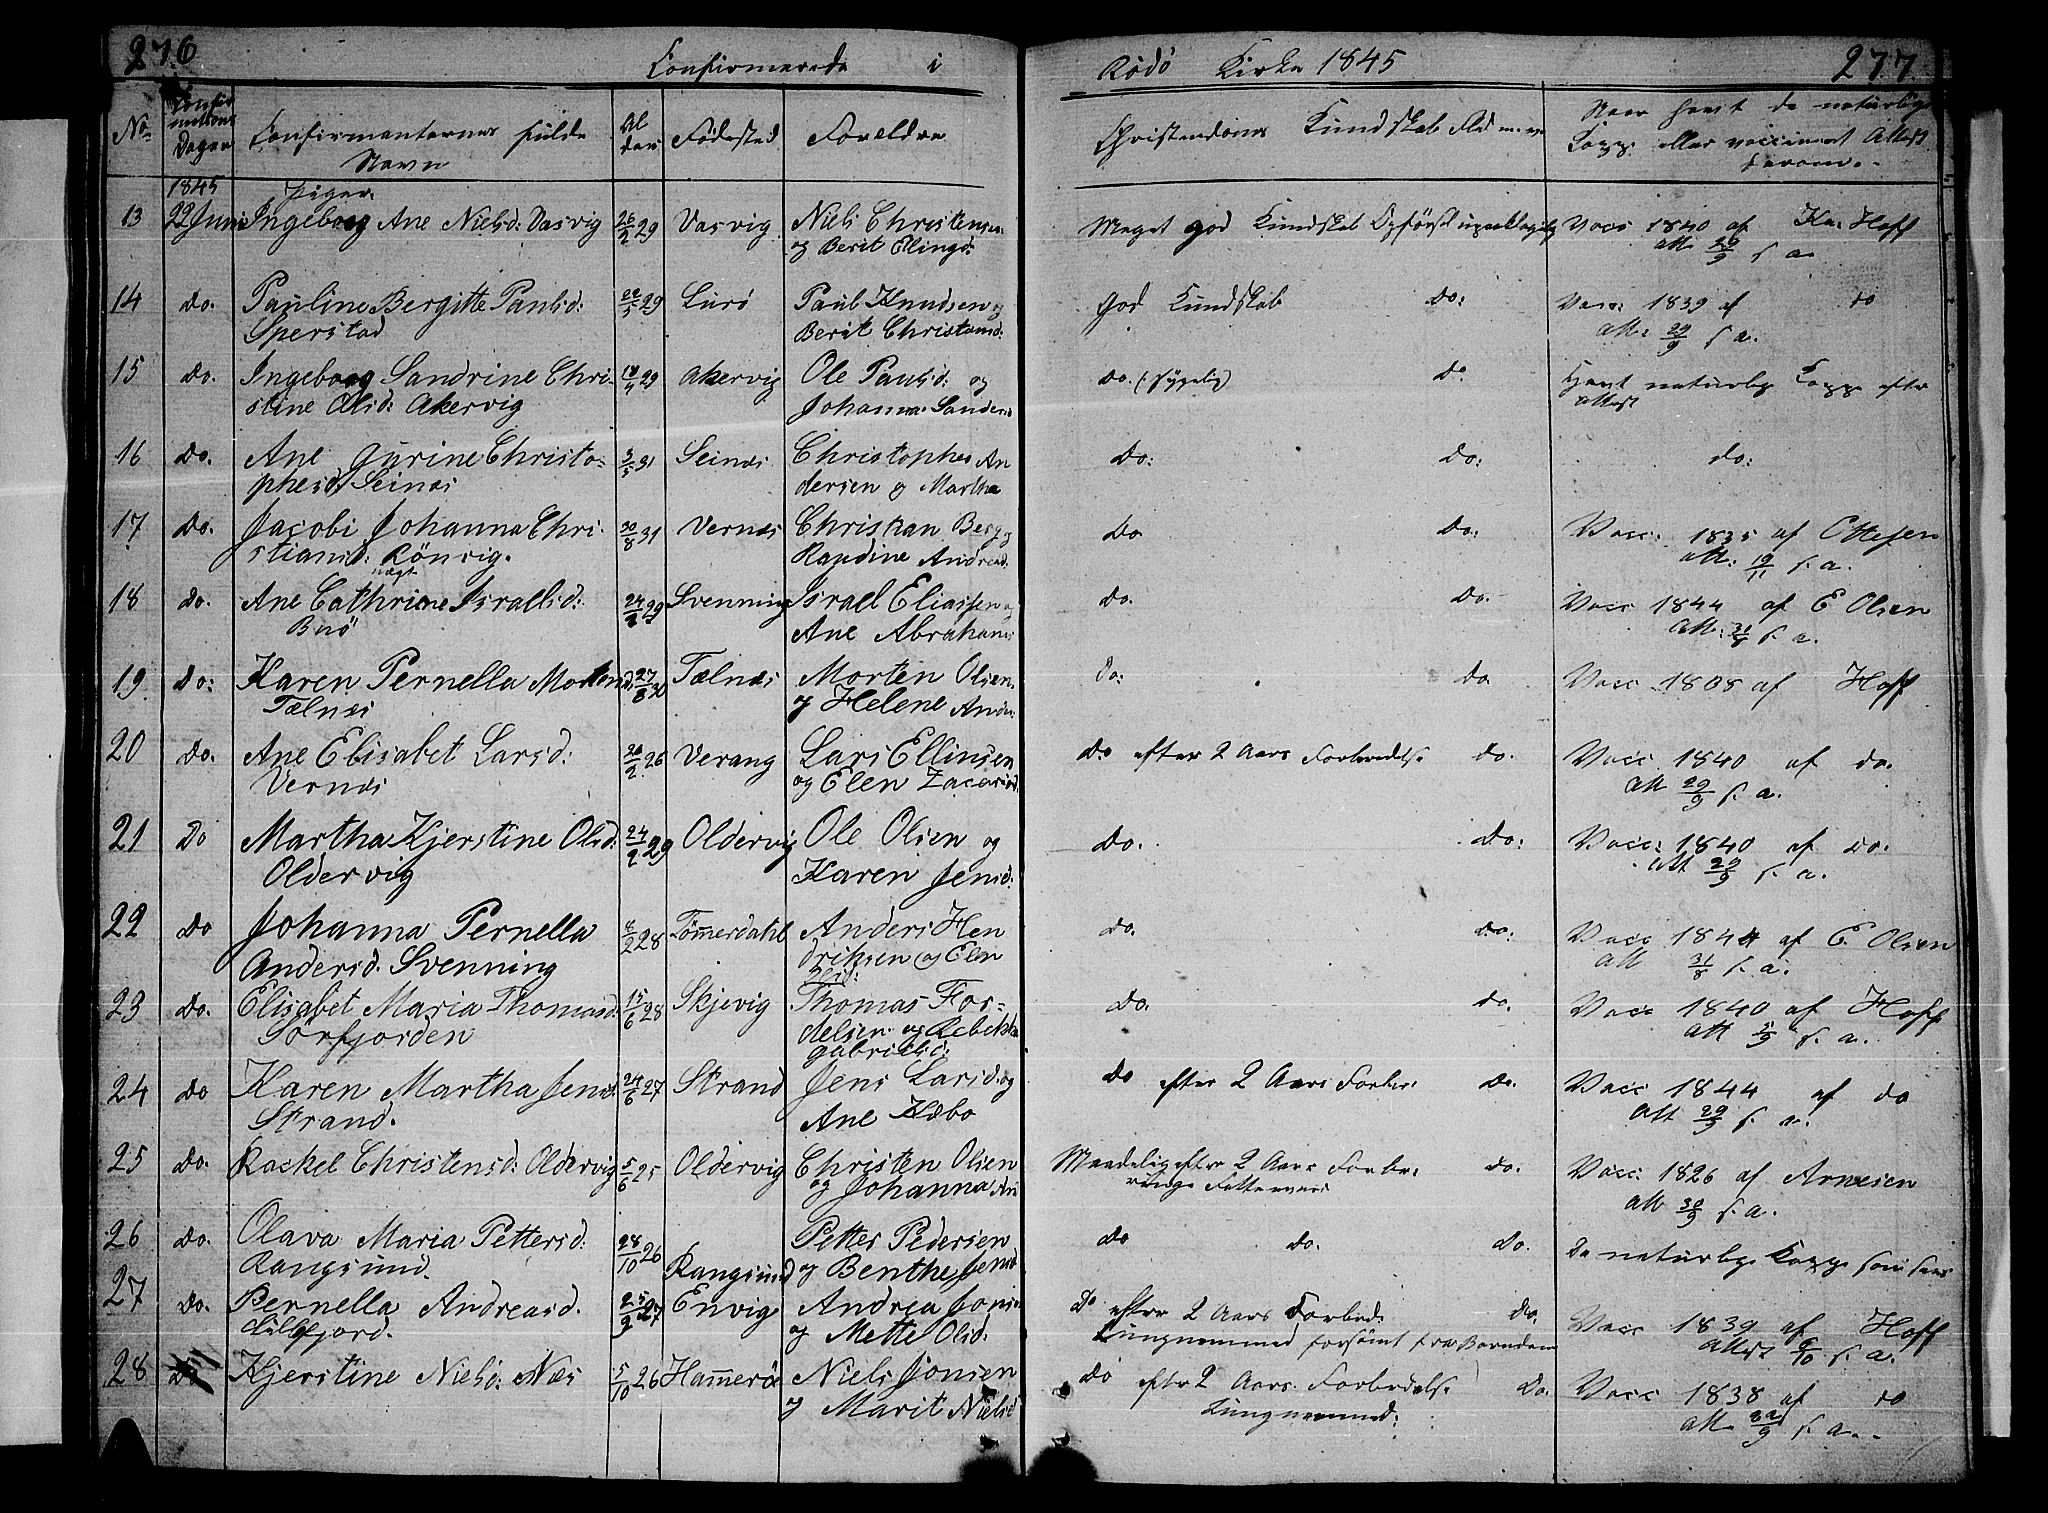 276 Confirmerede i Rödö Kirke 1845 277
No Confirmationens Dagen Confirmanternes fulde Navn Alder Födested Foreldre Christendoms Kundskab Naar havt de naturlige Kopper eller vaccineret Attest herom.-
1845 Piger.
13 22 Juni Ingeborg Ane Nielsd: Vasvig 26/2 29 Vasvig Niels Christensen Meget god Kundskab Opförsel upaaklagelig Vacc 1840 af Hoff
og Berit Ellingd: att 29/9 s. a.
14 do. Pauline Bergitte Paulsd: 29 Lurö Paul Knudsen og God Kundskab do: Vacc: 1839 af do
Sperstad Berit Christensd: att: 29/9 s. a.
15 do. Ingeborg Sandrine Chri- 29 Akervig Ole Paulsd: og do. (sygelig) do Havt naturlige Kopper efter
stine Olsd: Akervig Johanna Sandersd attest
16 do. Ane Gurine Christo= 3/5 31 Seines Christopher An do: do: do:
phersd. Seines dersen og Martha
17 do. Jacobi Johanna Chri- 30/8 31 Vernes Christian Berg og do do: Vacc: 1835 af Ottesen
stiansd: Rönvig. Randine Andreasd. att: 19/11 s. a.
18 do. Ane Cathrine Israelsd: 24/2 29 Svenning Israel Eliassen og do. do. Vacc 1844 af E Olsen
Buö Ane Abrahams att: 31/8 s. a.
19 do: Karen Pernella Mortensd: 27/8 30 Tælnes Morten Olsen do: do Vacc 1808 af Hoff
Tælnes og Helene Anders:
20 do. Ane Elisabet Larsd: 26 Verang Lars Ellinsen do efter 2 Aars Forberedelse do. Vacc 1840 af do.
Vernes og Elen Zacariasd. att 29/9 s. a.
21 do Martha Kjerstine Olsd: 24/2 29 Oldervig Ole Olsen og do. do: Vacc: 1840 af do.
Oldervig Karen Jensd: att 29/9 s. a.
22 do Johanna Pernella 8/2 28 Tömmerdahl Anders Hen do. do: Vacc 1844 af E. Olsen
Andersd. Svenning driksen og Elen att 31/8 s. a.
Olsd:
23 do. Elisabet Maria Thomasd. 15/6 28 Skjevig Thomas For= do. do. Vacc 1840 af Hoff
Sörfjorden delsen og Rebekka att 5/9 s. a.
Gabrielsd:
24 do Karen Martha Jensd. 24/6 27 Strand Jens Larsd. og do efter 2 Aars Forber: do. Vacc 1844 af do
Strand. Ane Hæbo att 29/9 s. a.
25 do. Rackel Christensd: Oldervig 5/6 25 Oldervig Christen Olsen Maadelig efter 2 Aars Forbe- do. Vacc: 1826 af Arnesen
og Johanna An ringe Fatteevne att 30/9 s. a.
26 do. Olava Maria Pettersd: 28/10 26 Rangsund Petter Pedersen do do. do. naturlige Kopper som sees
Rangsund. og Benthe Jensd
27 do. Pernella Andreasd. 25/9 27 Envig Andrea Jons do efter 2 Aars Forbed: do. Vacc 1839 af Hoff
Lillefjord. og Mette Olsd. Tungnemmed forsömt fra Barndom attest 6/10 s. a.
28 do Kjerstine Nielsd: Næs 5/10 26 Hammerö Niels Jonsen do efter 2 Aars Forberdelse do. Vacc 1838 af do
og Marit Nielsd Tungnemmed: att 22/9 s. a.-